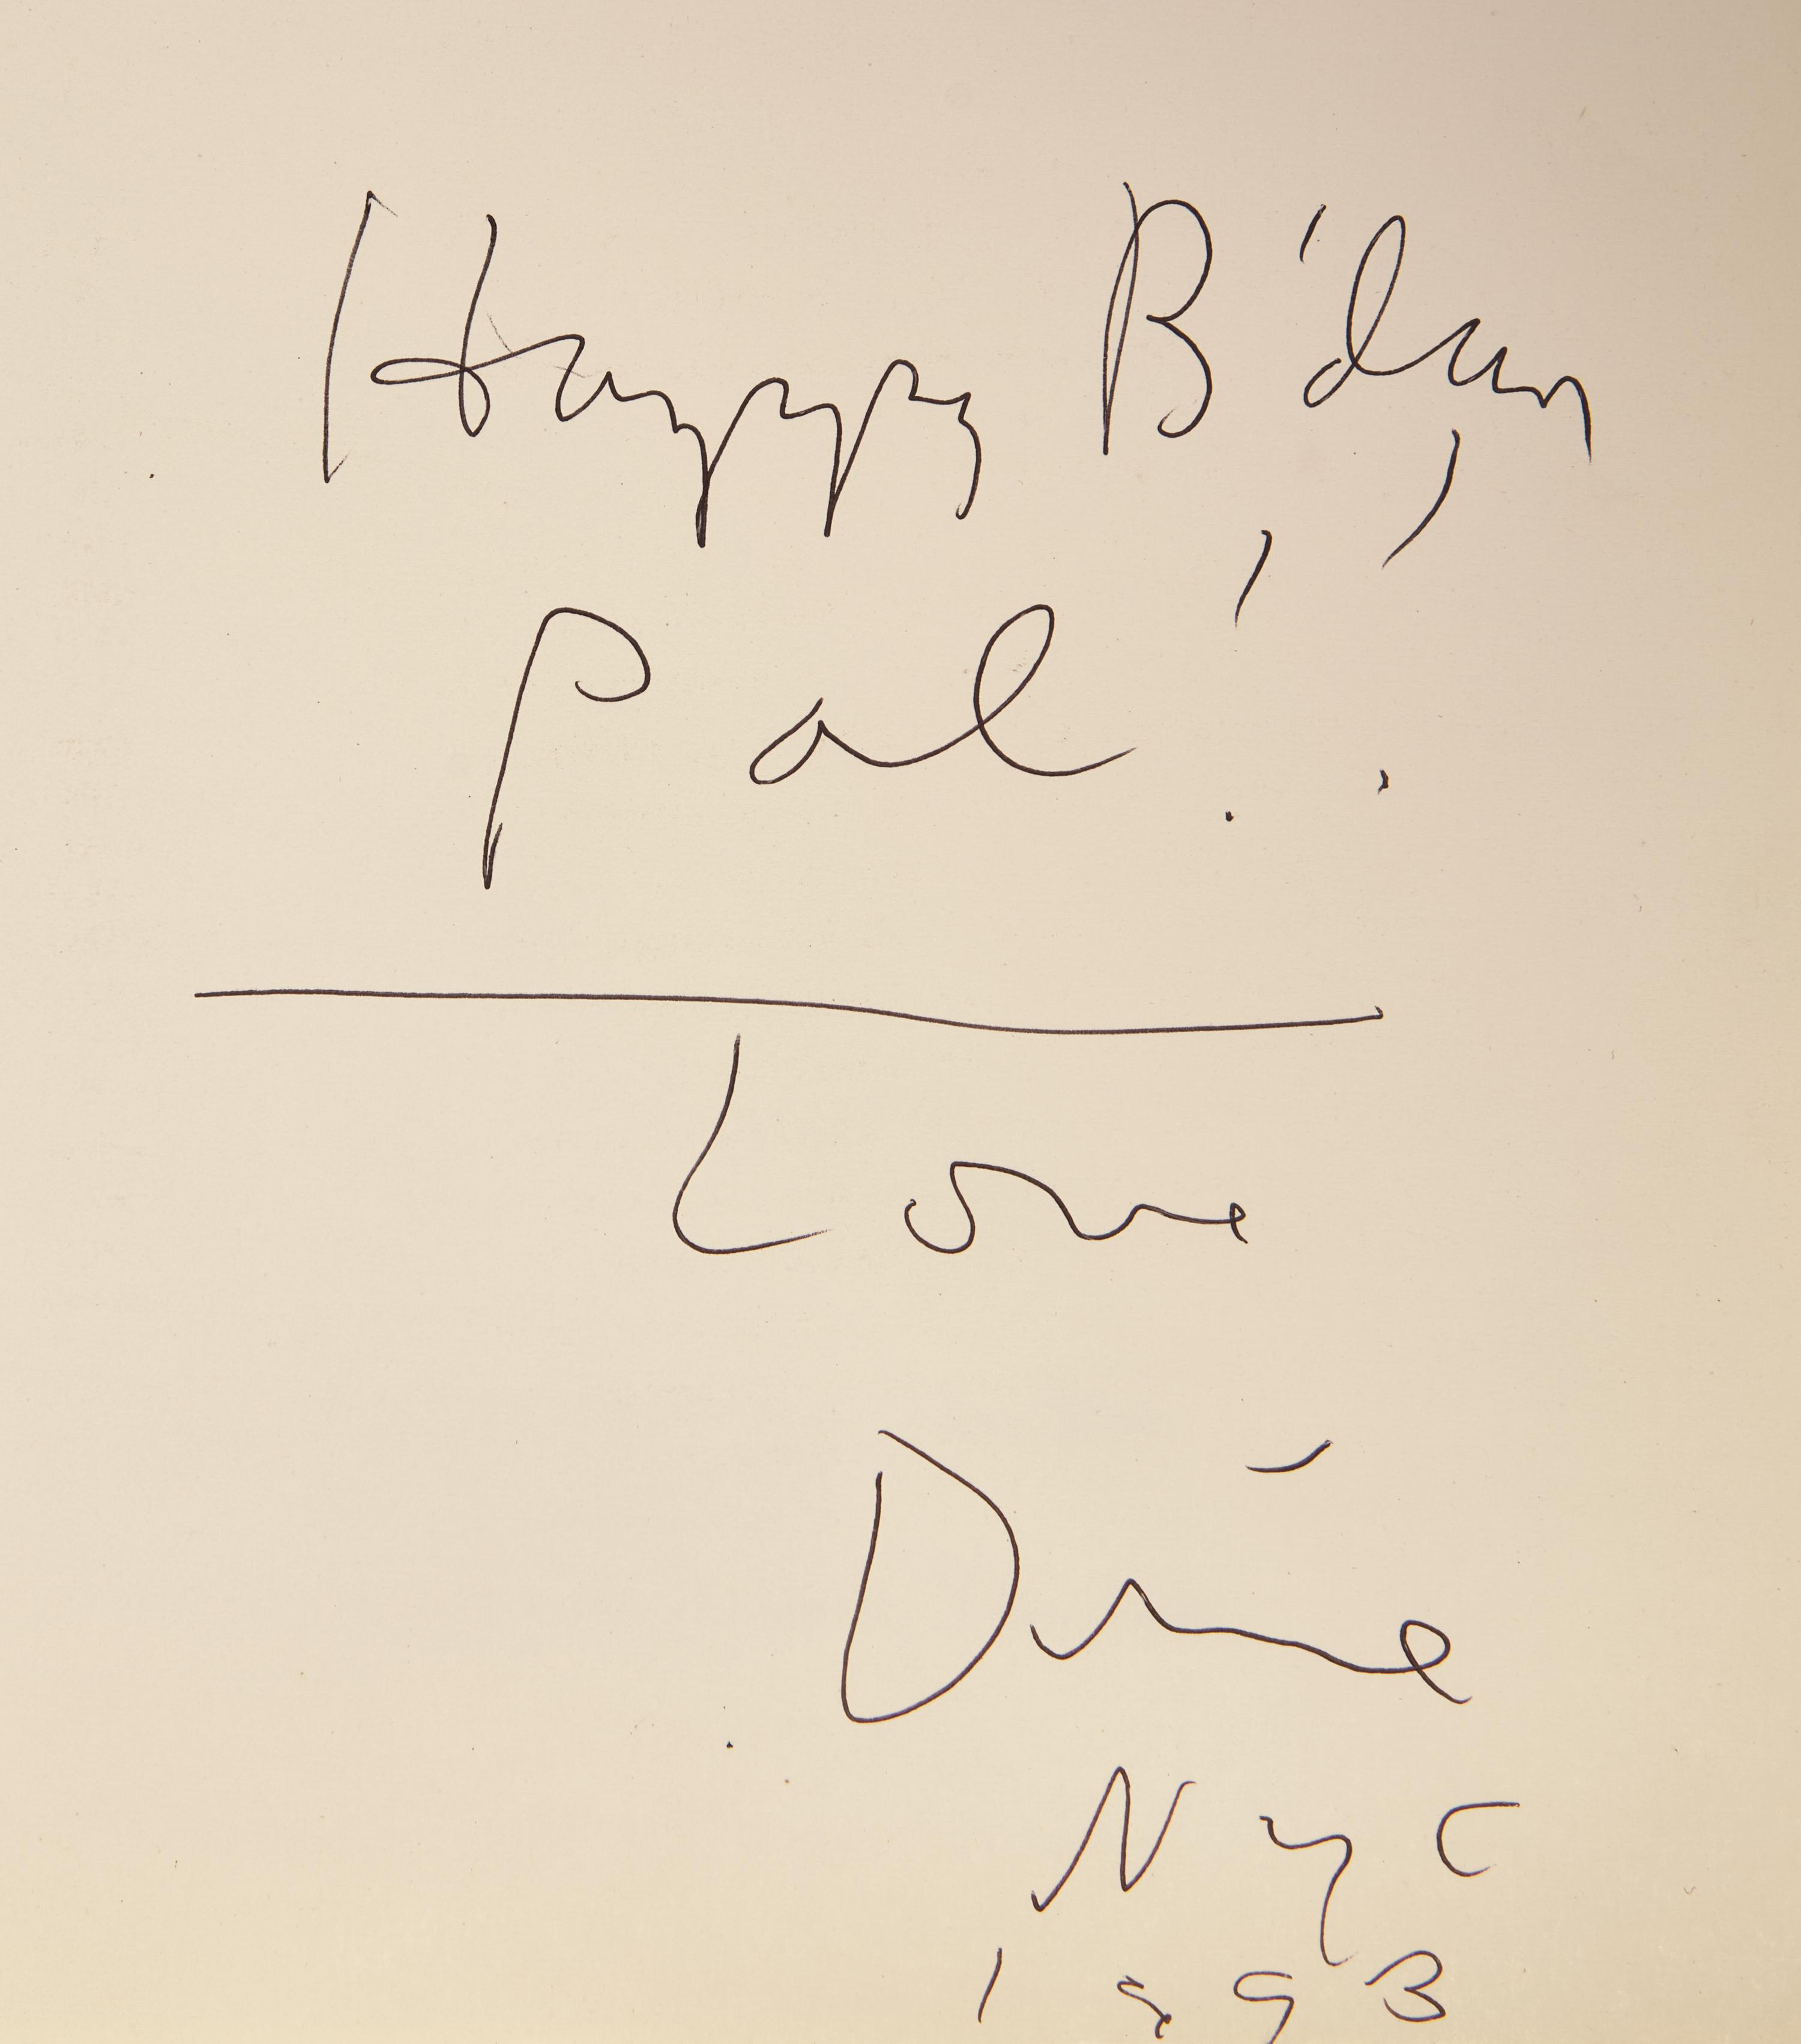 Happy B'day
Pal!!
Love
Dine
NYC
1993